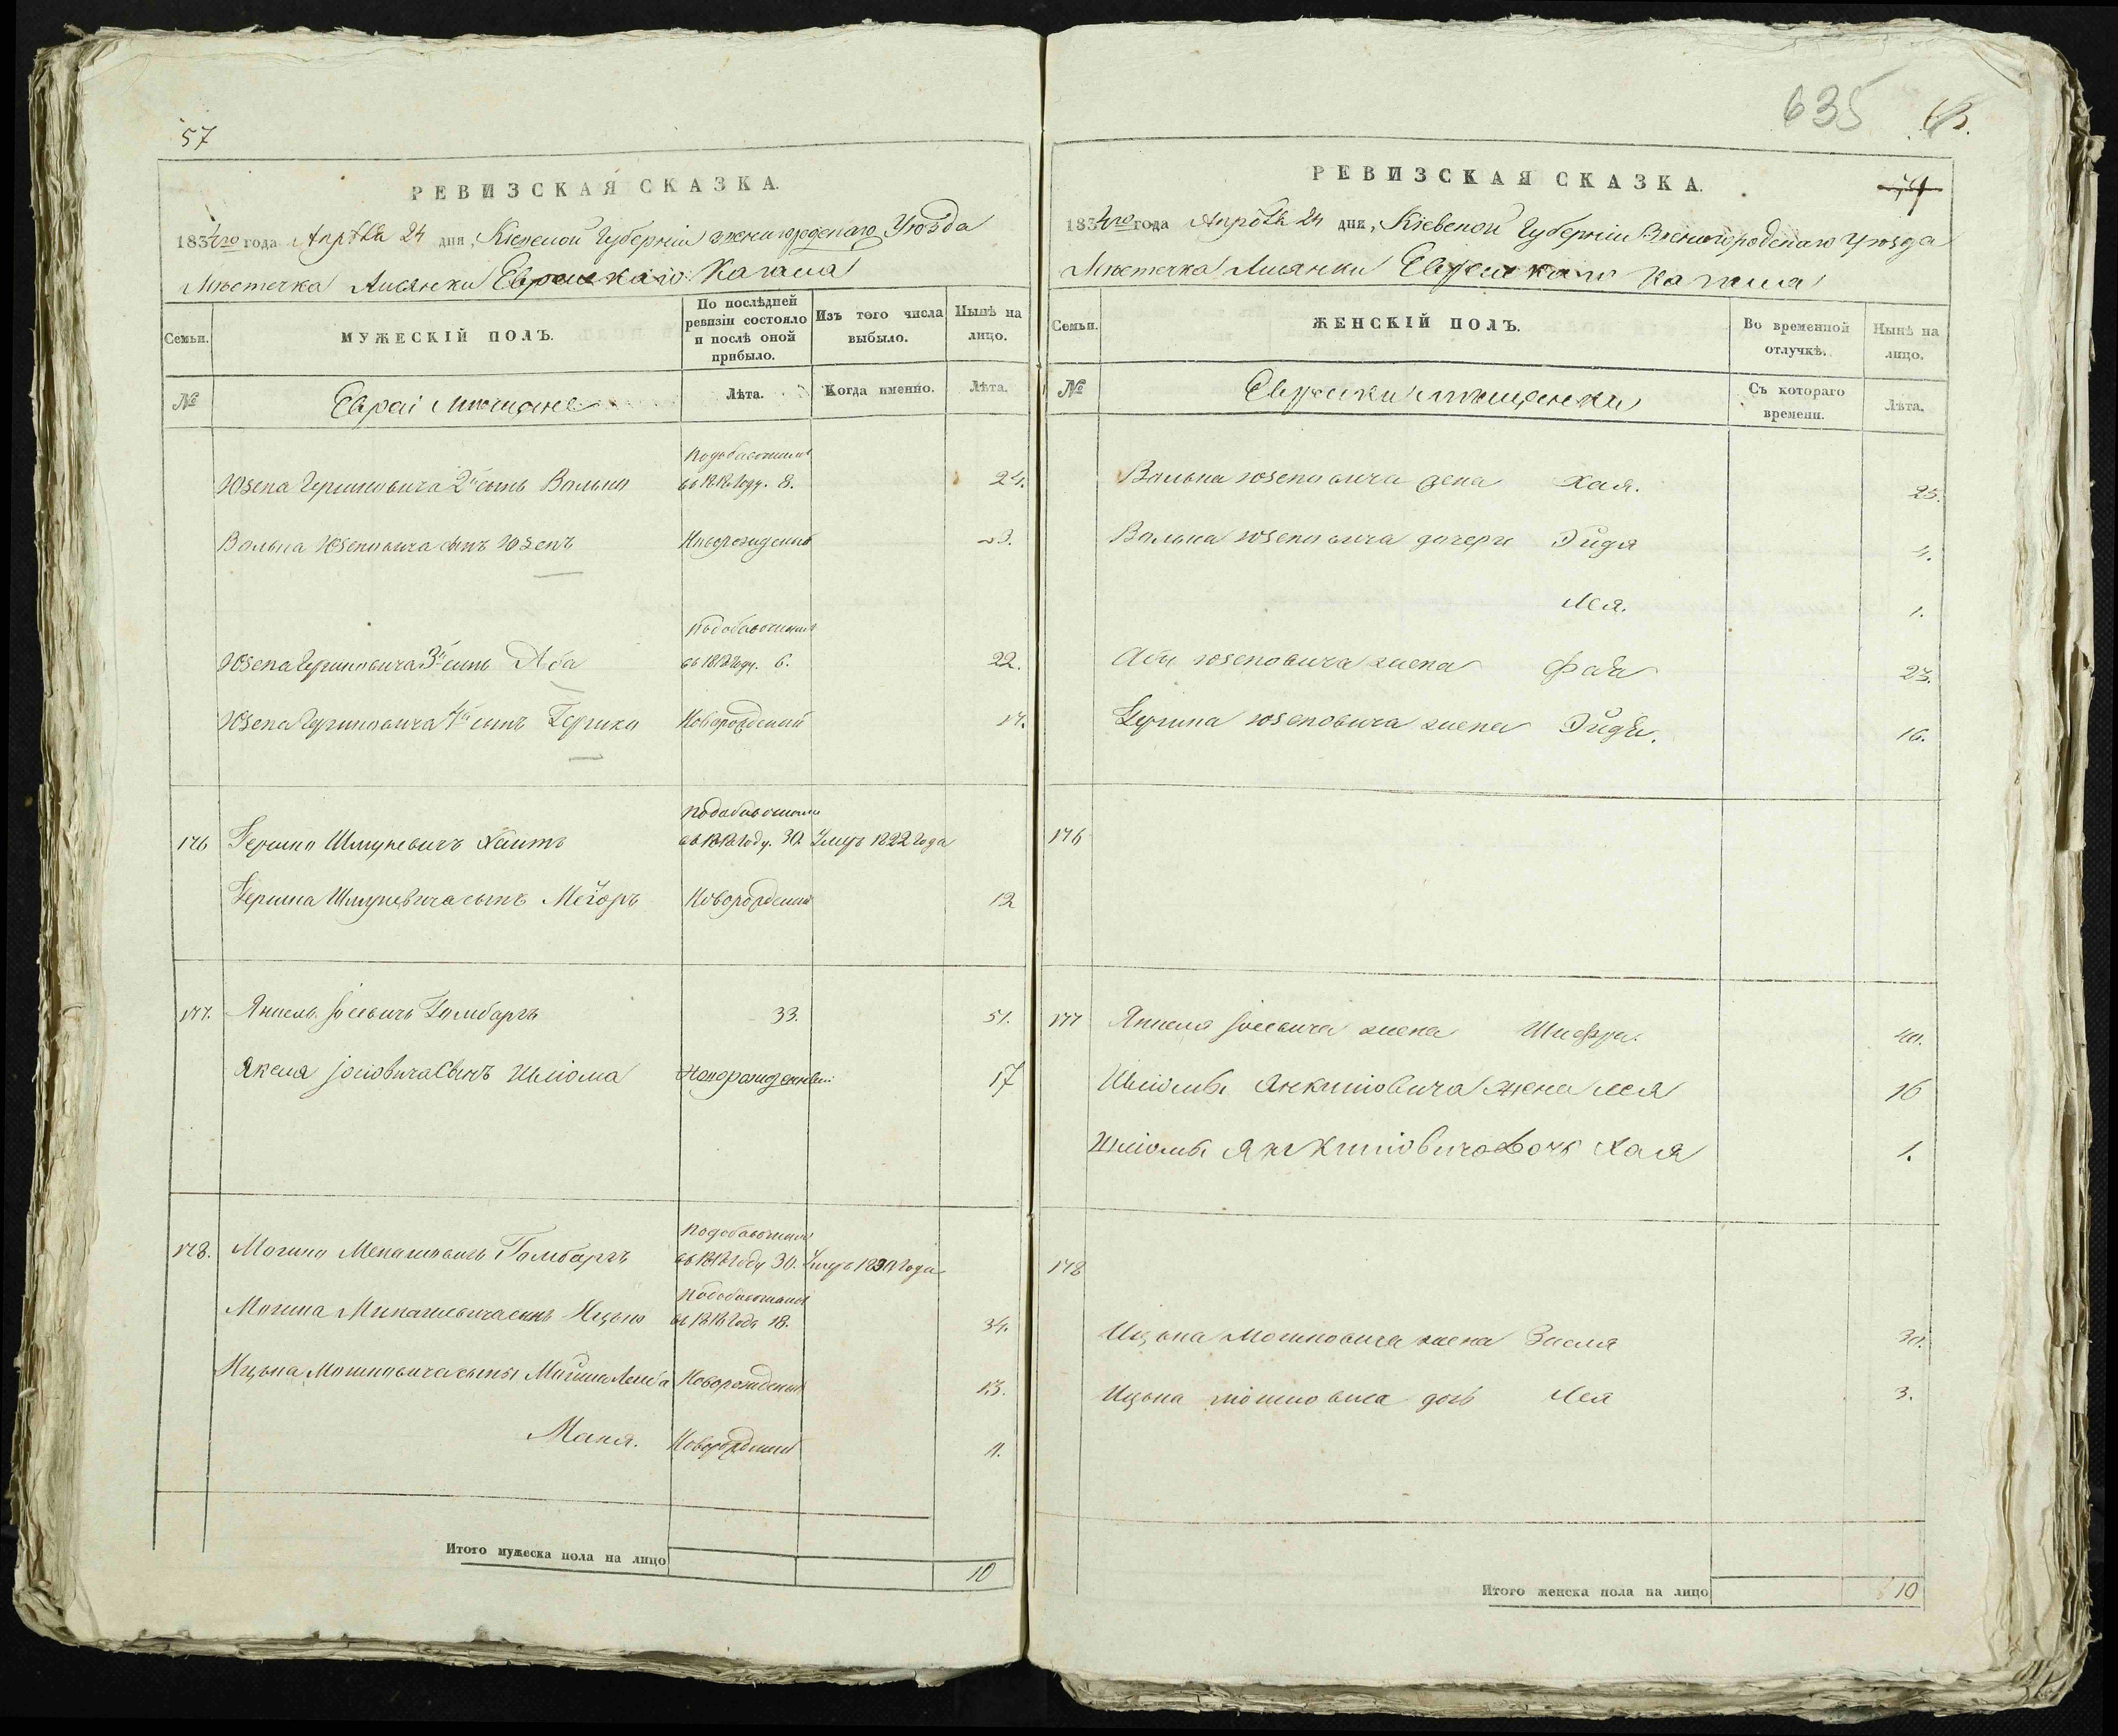 57
РЕВИЗСКАЯ СКАЗКА.
1834го года Апрѣля 24 дня, Кіевской Губерніи Звенигородскаго Уѣзда
Мѣстечка Лисянки Еврейскаго Кагала
Семьи.
МУЖЕСКІЙ ПОЛЪ.
По послѣдней ревизіи состояло и послѣ оной прибыло.
Изъ того числа выбыло.
Нынѣ на лицо.
№
Евреи Мѣщане
Лѣта.
Когда именно.
Лѣта.
Юзепа Гершковича 2й сынъ Волько 8. 24.
Волька Юзеповича сынъ Юзепъ Новорожденный 3.
Юзепа Гершковича 3й сынъ Аба 6. 22.
Юзепа Гершковича 4й сынъ Гершко Новорожденный 17.
176 Гершко Шмулевичъ 30. Умеръ 1822 года
Гершка Шмулевича сынъ Новорожденный 12
177. Янкель Іосевичъ Гамбаргъ 33. 51.
Янкеля Іосіовича Сынъ Шліома Новорожденный 17
178. Мошко Менашовичъ Гамбаргъ 30. Умеръ года
Мошка сынъ Ицько 18. 34.
Ицька Мошковича сыны Новорожденный 13.
Новорожденный 11.
Итого мужеска пола на лицо 10
635
РЕВИЗСКАЯ СКАЗКА.
1834го года Апрѣля 24 дня, Кіевской Губерніи Звенигородскаго Уѣзда
Мѣстечка Лисянки Еврейскаго Кагала
Семьи.
ЖЕНСКІЙ ПОЛЪ.
Во временной отлучкѣ.
Нынѣ на лицо.
№
Еврейки мѣщанки
Съ котораго времени.
Лѣта.
Волька Юзеповича жена Хая. 25.
Волька Юзеповича дочери Эйдя 4.
Лея. 1.
Абы Юзеповича жена 23.
Гершка Юзеповича жена 16.
176
177 Янкеля Іосевича жена Шифра. 40.
Шліомы Янкиліовича жена Лея 16
Шліомы Янкиліовича дочь Хая 1.
178
Ицька Мошковича жена Зисля 30.
Ицька дочь Лея 3.
Итого женска пола на лицо 10